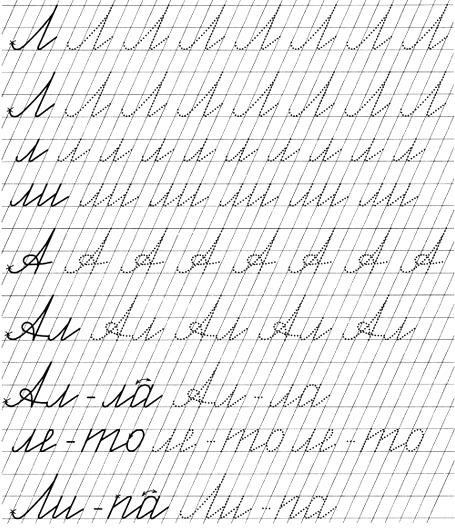 Л Л Л Л Л Л Л Л
Л Л Л Л Л Л Л Л
л л л л л л л л л л
лл лл лл лл лл лл лл
А А А А А А А А
Ал Ал Ал Ал Ал
Ал - ла Ал - ла
ле - то ле - то ле - то
Ли - па Ли - па